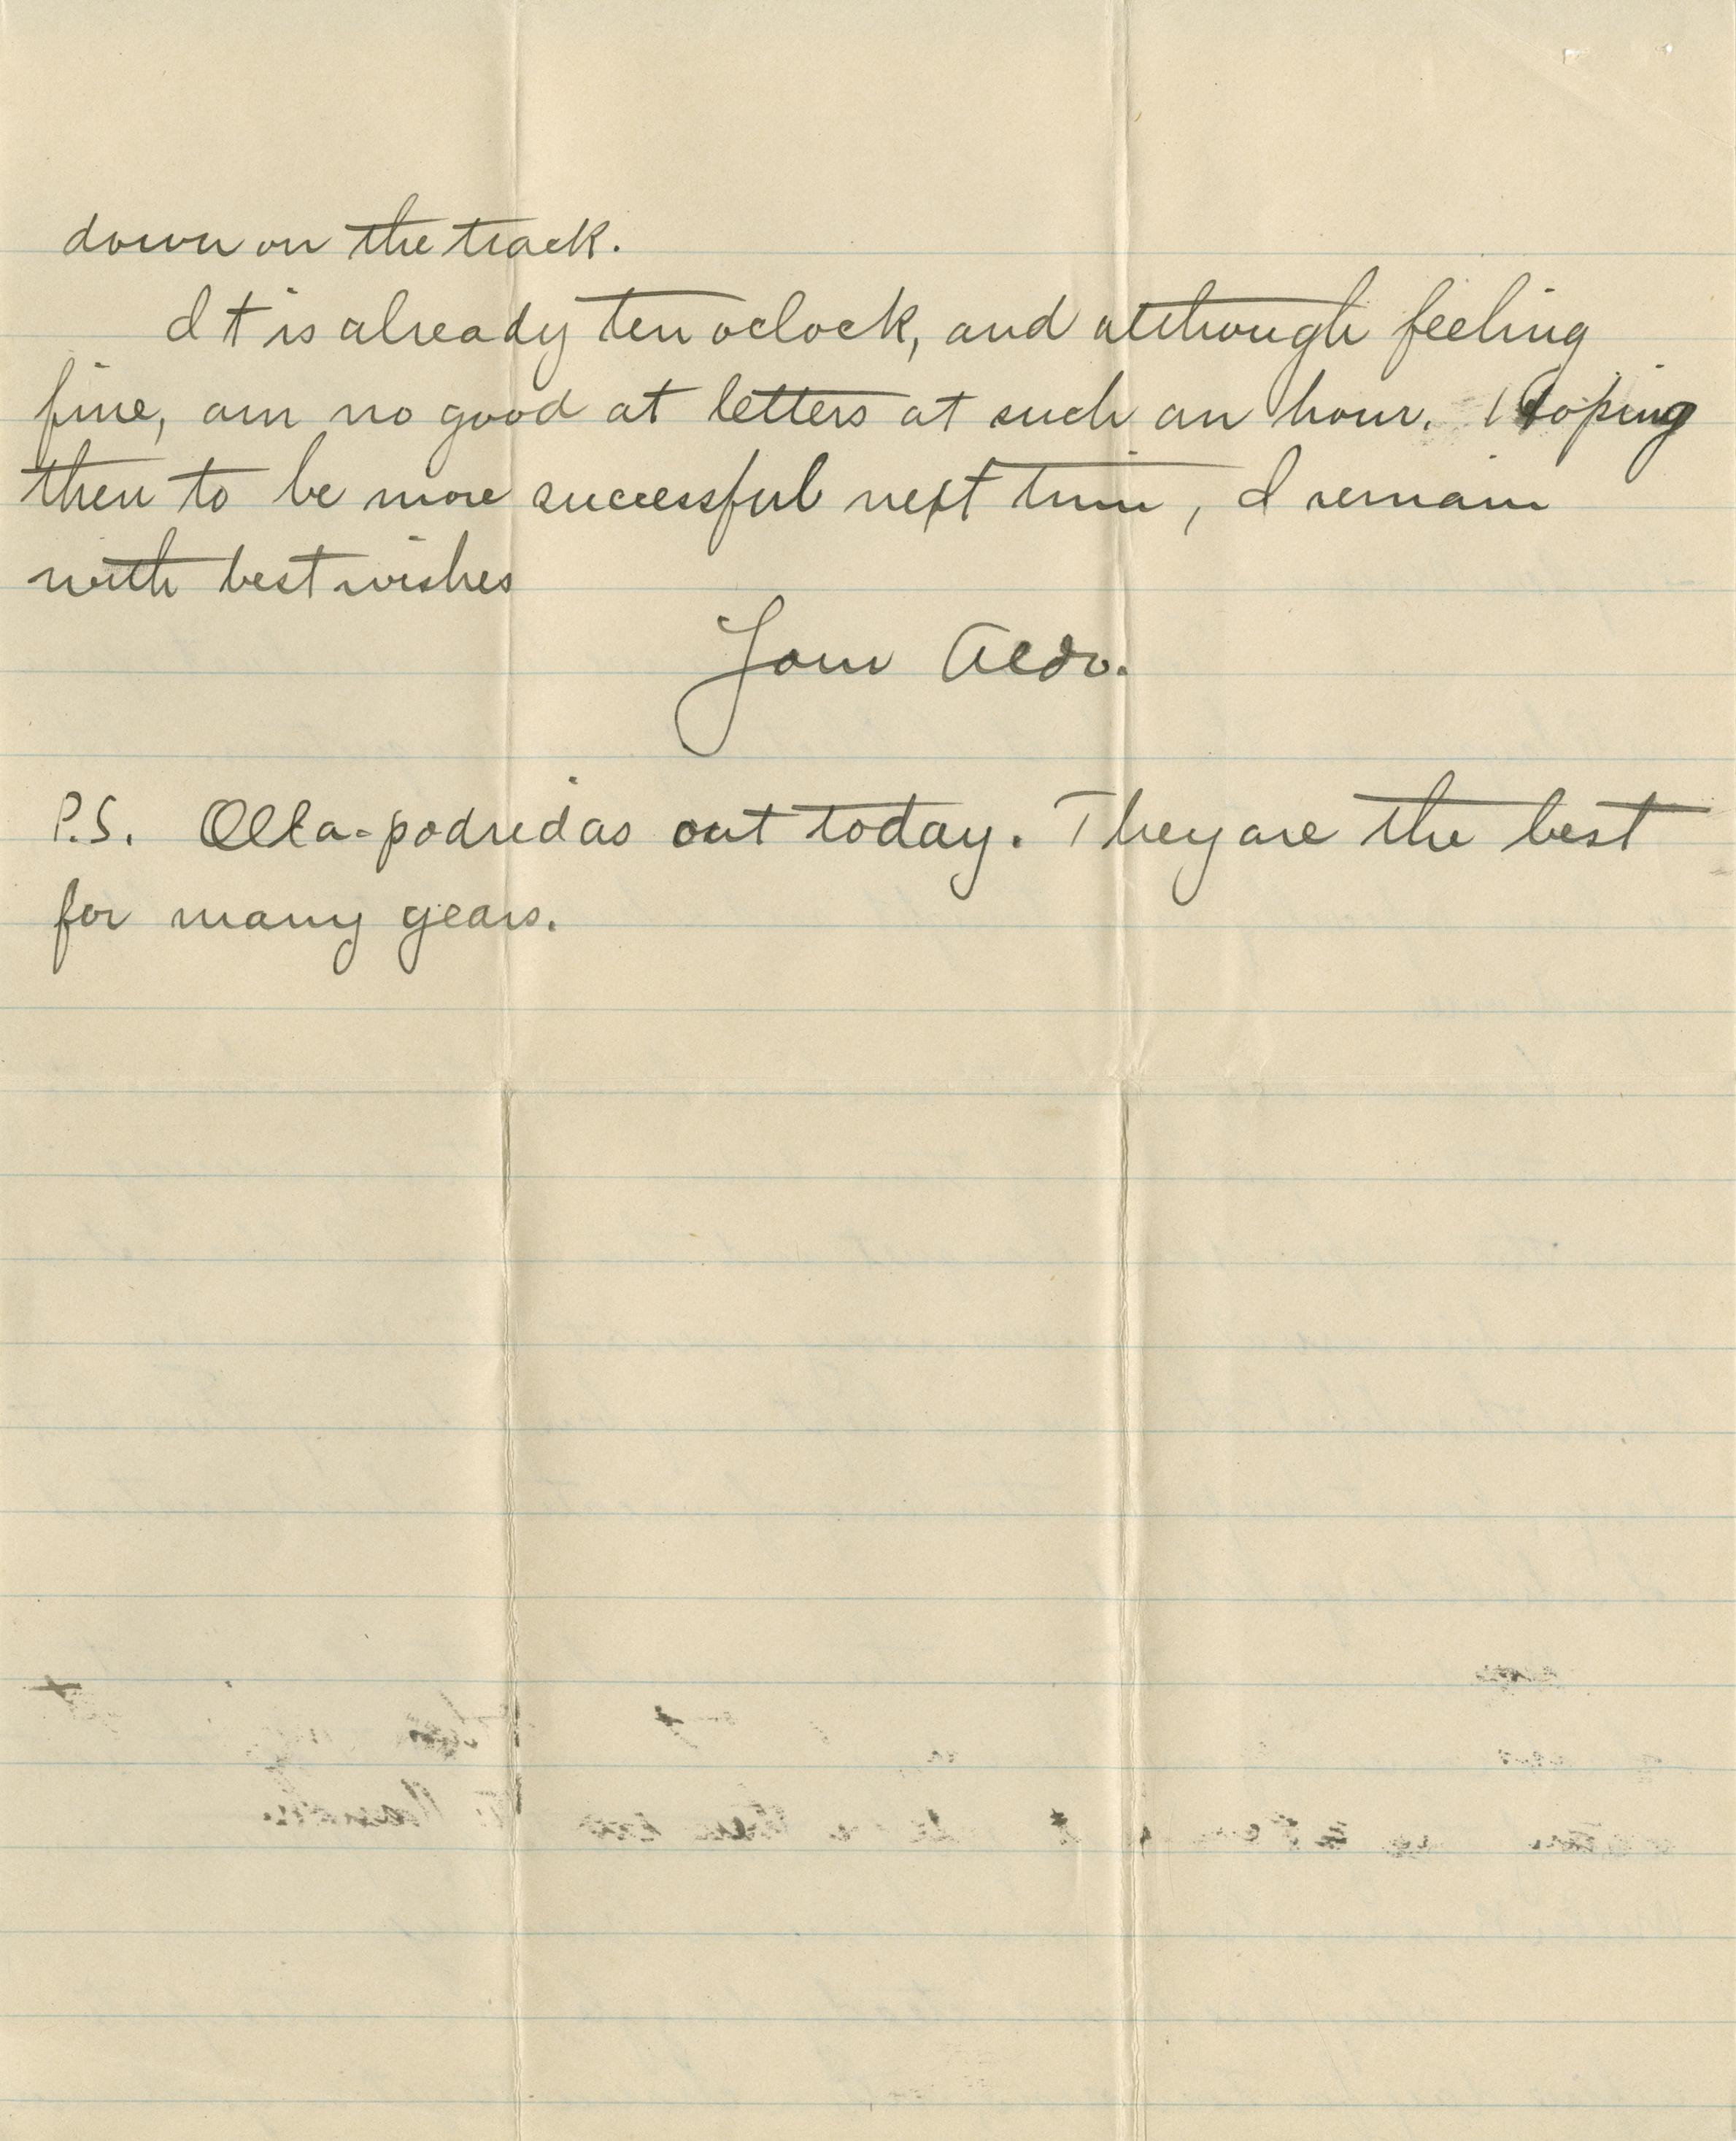 down on the track.
It is already ten oclock, and although feeling
fine, am no good at letters at such an hour. Hoping
then to be more successful next time, I remain
with best wishes
Your Aldo.
P.S. Olla-podridas out today. They are the best
for many years.